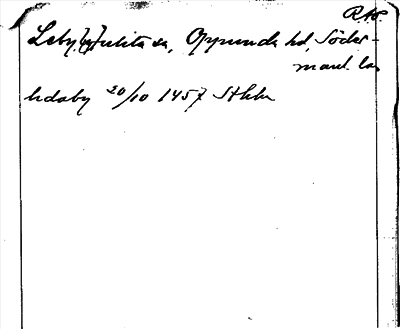 R.Ap.
Leby, Julita sn, Oppunda hd, Söder-
manl. län
ledaby 20/10 1457 Sthlm